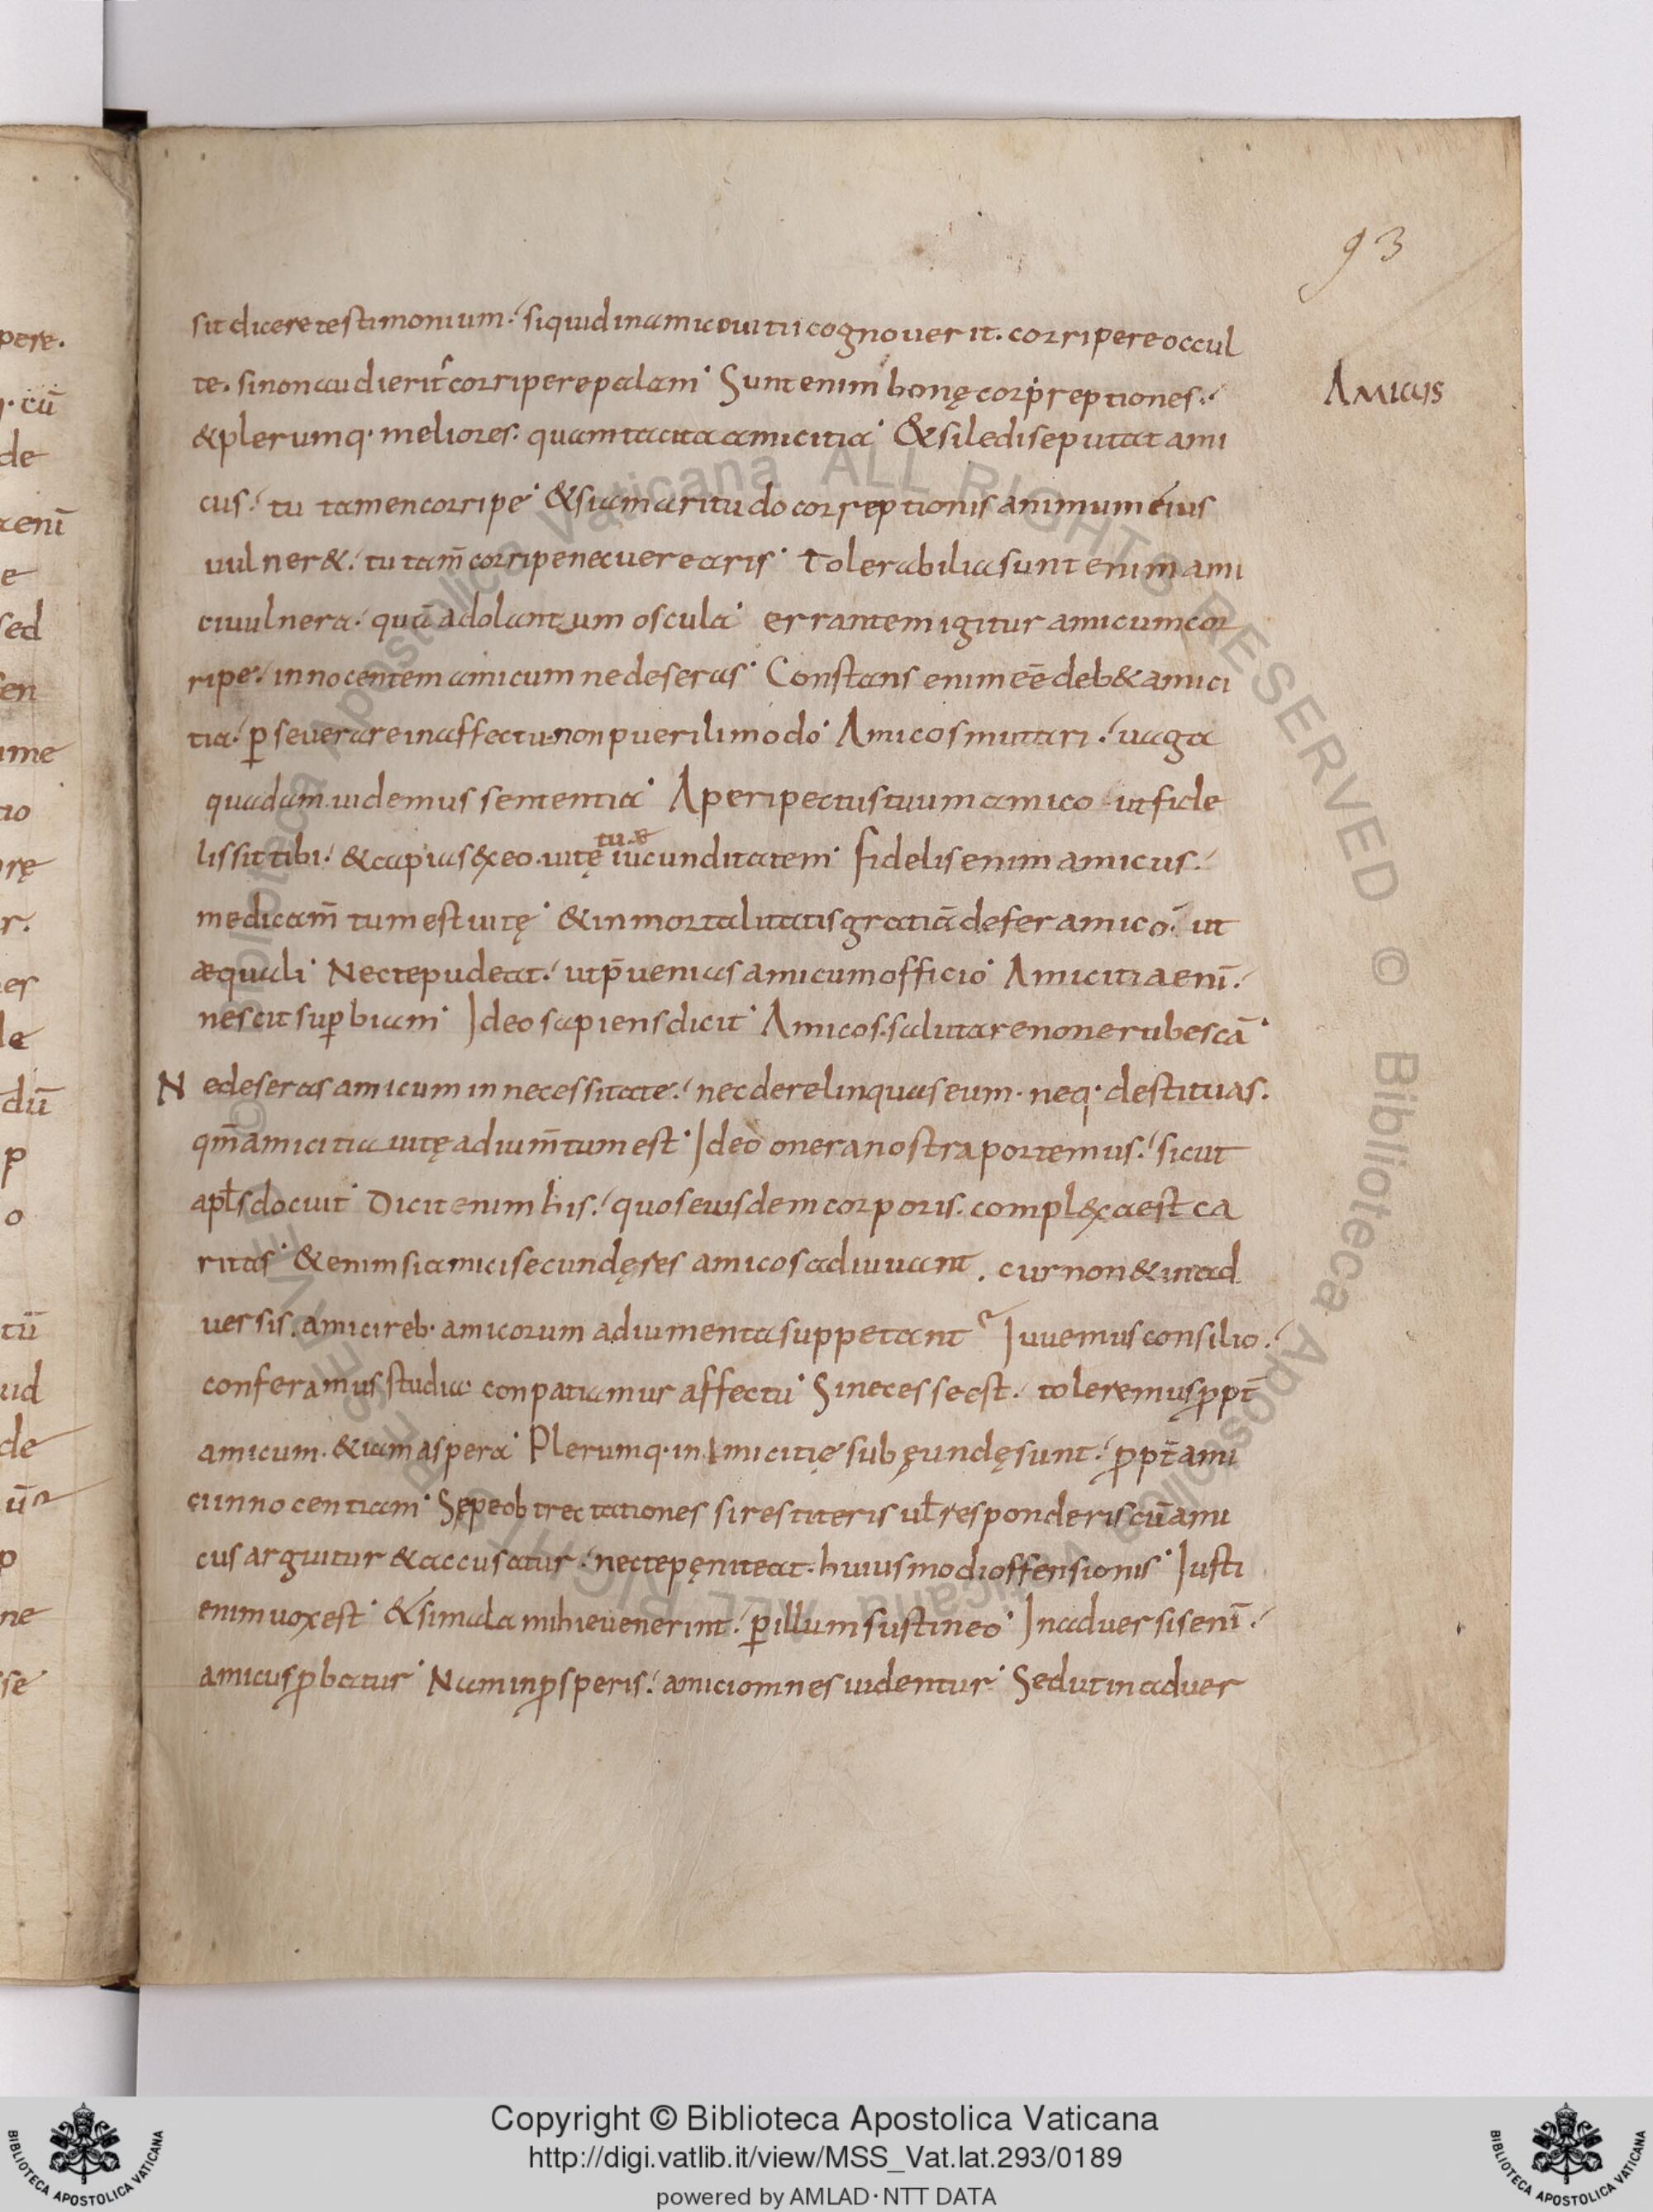 93
sit dicere testimonium. siquid in amico uitii cognouerit. corripere occul
te. si non audierit corripere palam. Sunt enim bonę corrreptiones.
&plerumq. meliores. quam tacita amicitia. & si ledi se putat ami
Amicus
cus. tu tamen corripe. & si amaritudo correptionis animum eius
uulner&. tu tam̅ corripe nec uerearis. Tolerabilia sunt enim ami
ci uulnera. quā adolantum oscula. errantem igitur amicum cor
ripe. innocentem amicum ne deseras. Constans enim eē deb& amici
tia. ꝑseuerare in affectu. non puerili modo. Amicos mutari. uaga
quadam. uidemus sententia. Aperi pectus tuum amico. ut fide
lis sit tibi. & capias &x eo. uitę tuę iucunditatem. fidelis enim amicus.
medicam̅tum est uitę. & inmortalitatis gratiā defer amico. ut
æquali. Nec te pudeat. ut p̄uenias amicum officio. Amicitia enī.
nescit suꝑbiam. Ideo sapiens dicit. Amicos. salutare non erubescā.
Ne deseras amicum in necessitate. nec derelinquas eum. neq. destituas.
qm̅ amicitia uitę adium̅tum est. Ideo onera nostra portemus. sicut
apłs docuit. Dicit enim his. quos eiusdem corporis. compl&xa est ca
ritas. &enim si amici secundę res amicos adiuuant. cur non & in ad
uersis. amici reb. amicorum adiumenta suppetant. Iuuemus consilio.
conferamus studia conpatiamur affectu. Si necesse est. toleremus ꝓpt̄
amicum. &iam aspera. Plerumq. inimicitię subęundę sunt. ꝓpt̄ ami
ci innocentiam. Sępe obtrectationes si restiteris uł responderis cū ami
cus arguitur & accusatur. nec te pęniteat. huiusmodi offensionis. Iusti
enim uox est. & si mala mihi euenerint. ꝑ illum sustineo. In aduersis enī.
amicus ꝓbatur. Nam in ꝓsperis. amici omnes uidentur. Sed ut in aduer
Copyright © Biblioteca Apostolica Vaticana
http://digi.vatlib.it/view/MSS_Vat.lat.293/0189
powered by AMLAD · NTT DATA